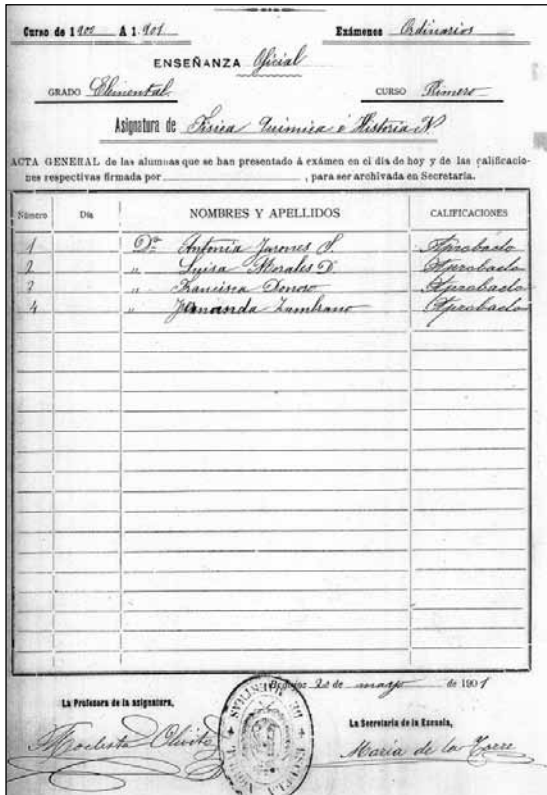 Curso de 1900 A 1.901 Exámenes Ordinarios
ENSEÑANZA Oficial
GRADO Elemental CURSO Primero
Asignatura de Física Química é Historia N.
ACTA GENERAL de las alumnas que se han presentado á exámen en el día de hoy y de las calificacio-
nes respectivas firmada por , para ser archivada en Secretaría.
Número Día NOMBRES Y APELLIDOS CALIFICACIONES
1 Dª Antonia S. Aprobado
2 " Luisa Morales D. Aprobado
3 " Francisca Donoso Aprobado
4 " Zambrano Aprobado
20 de mayo de 1901
La Profesora de la asignatura, La Secretaria de la Escuela,
Modesta María de la Torre
ESCUELA DE MAESTRAS